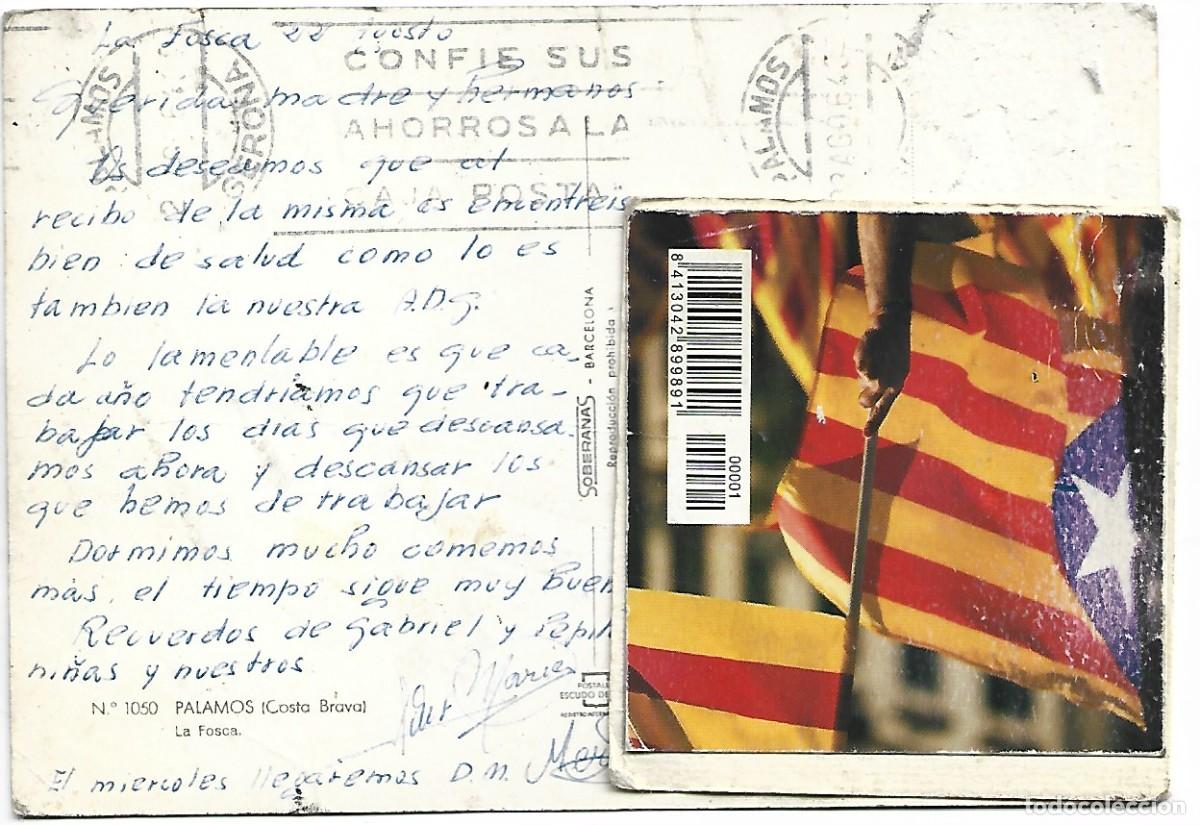 La Fosca 22 Agosto
Querida madre y hermanos
Os deseamos que al
recibo de la misma os encontreis
bien de salud como lo es
tambien la nuestra A.D.G.
Lo lamentable es que ca-
da año tendriamos que tra-
bajar los dias que descansa-
mos ahora y descansar los
que hemos de trabajar
Dormimos mucho comemos
mas, el tiempo sigue muy buen
Recuerdos de Gabriel y Pepit
niñas y nuestros
N.º 1050 PALAMOS (Costa Brava)
La Fosca.
El miercoles llegaremos D.M.
CONFIE SUS
AHORROS A LA
CAJA POSTAL
PALAMOS
GERONA
PALAMOS
SOBERANAS - BARCELONA
Reproducción prohibida
POSTALE
ESCUDO DE
8 413042 899891
00001
todocoleccion